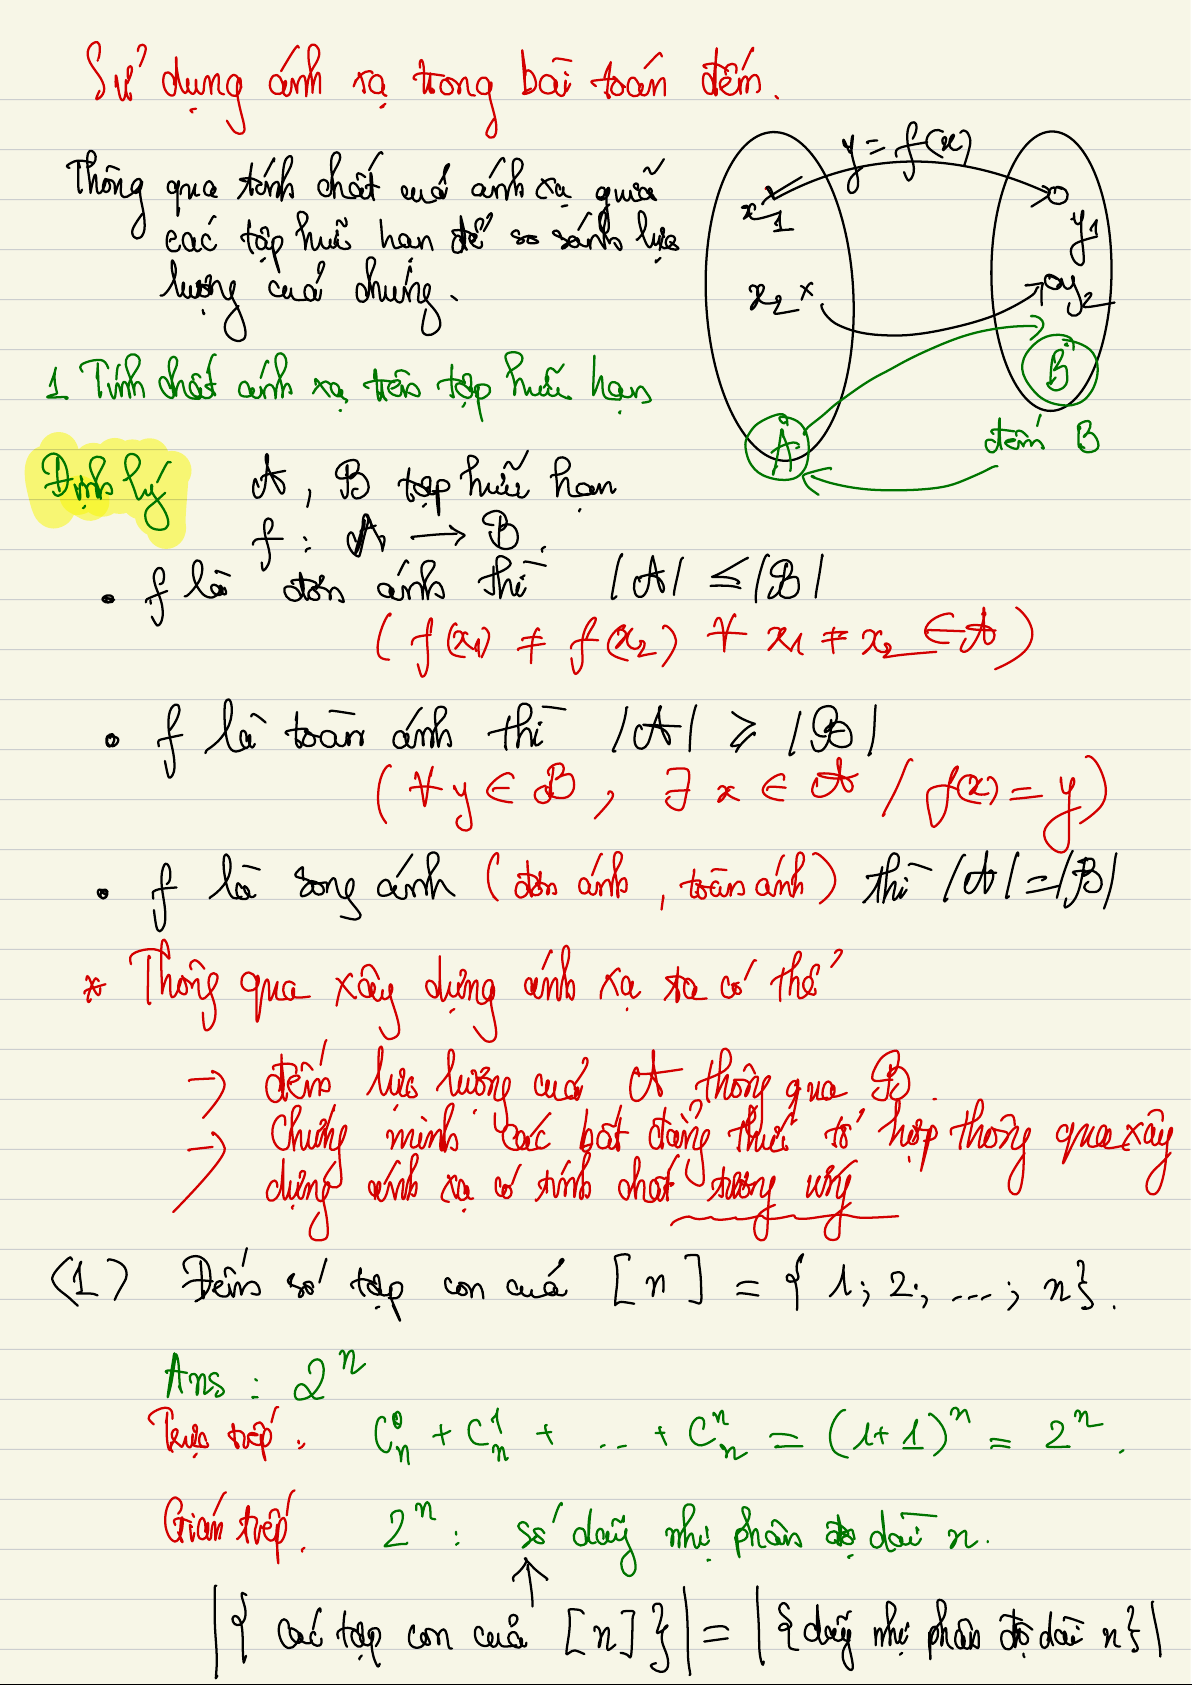 Sử dụng ánh xạ trong bài toán đếm.
Thông qua tính chất của ánh xạ giữa
các tập hữu hạn để so sánh lực
lượng của chúng.
y = f(x)
x1
y1
x2
y2
B
A
đếm B
1. Tính chất ánh xạ trên tập hữu hạn
Định lý A, B tập hữu hạn
f : A → B.
• f là đơn ánh thì |A| ≤ |B|
( f(x1) ≠ f(x2) ∀ x1 ≠ x2 ∈ A )
• f là toàn ánh thì |A| ≥ |B|
( ∀ y ∈ B , ∃ x ∈ A / f(x) = y )
• f là song ánh (đơn ánh, toàn ánh) thì |A| = |B|
* Thông qua xây dựng ánh xạ ta có thể
→ đếm lực lượng của A thông qua B.
→ Chứng minh các bất đẳng thức tổ hợp thông qua xây
dựng ánh xạ có tính chất tương ứng
<1> Đếm số tập con của [n] = { 1; 2; ...; n}.
Ans : 2^n
Trực tiếp. C_n^0 + C_n^1 + ... + C_n^n = (1+1)^n = 2^n.
Gián tiếp. 2^n : số dãy nhị phân độ dài n.
↑
|{ các tập con của [n] }| = |{dãy nhị phân độ dài n}|